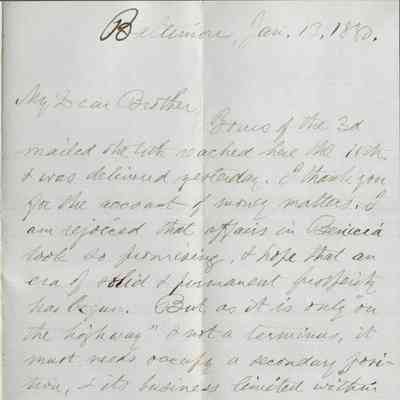 Baltimore, Jan. 13, 1880.
My Dear Brother
Yours of the 3d
mailed the 4th reached here the 10th
& was delivered yesterday. I thank you
for the account of money matters. I
am rejoiced that affairs in Benicia
look so promising, & hope that an
era of solid & permanent prosperity
has begun. But as it is only "on
the highway" & not a terminus, it
must needs occupy a secondary posi-
tion, & its business limited within